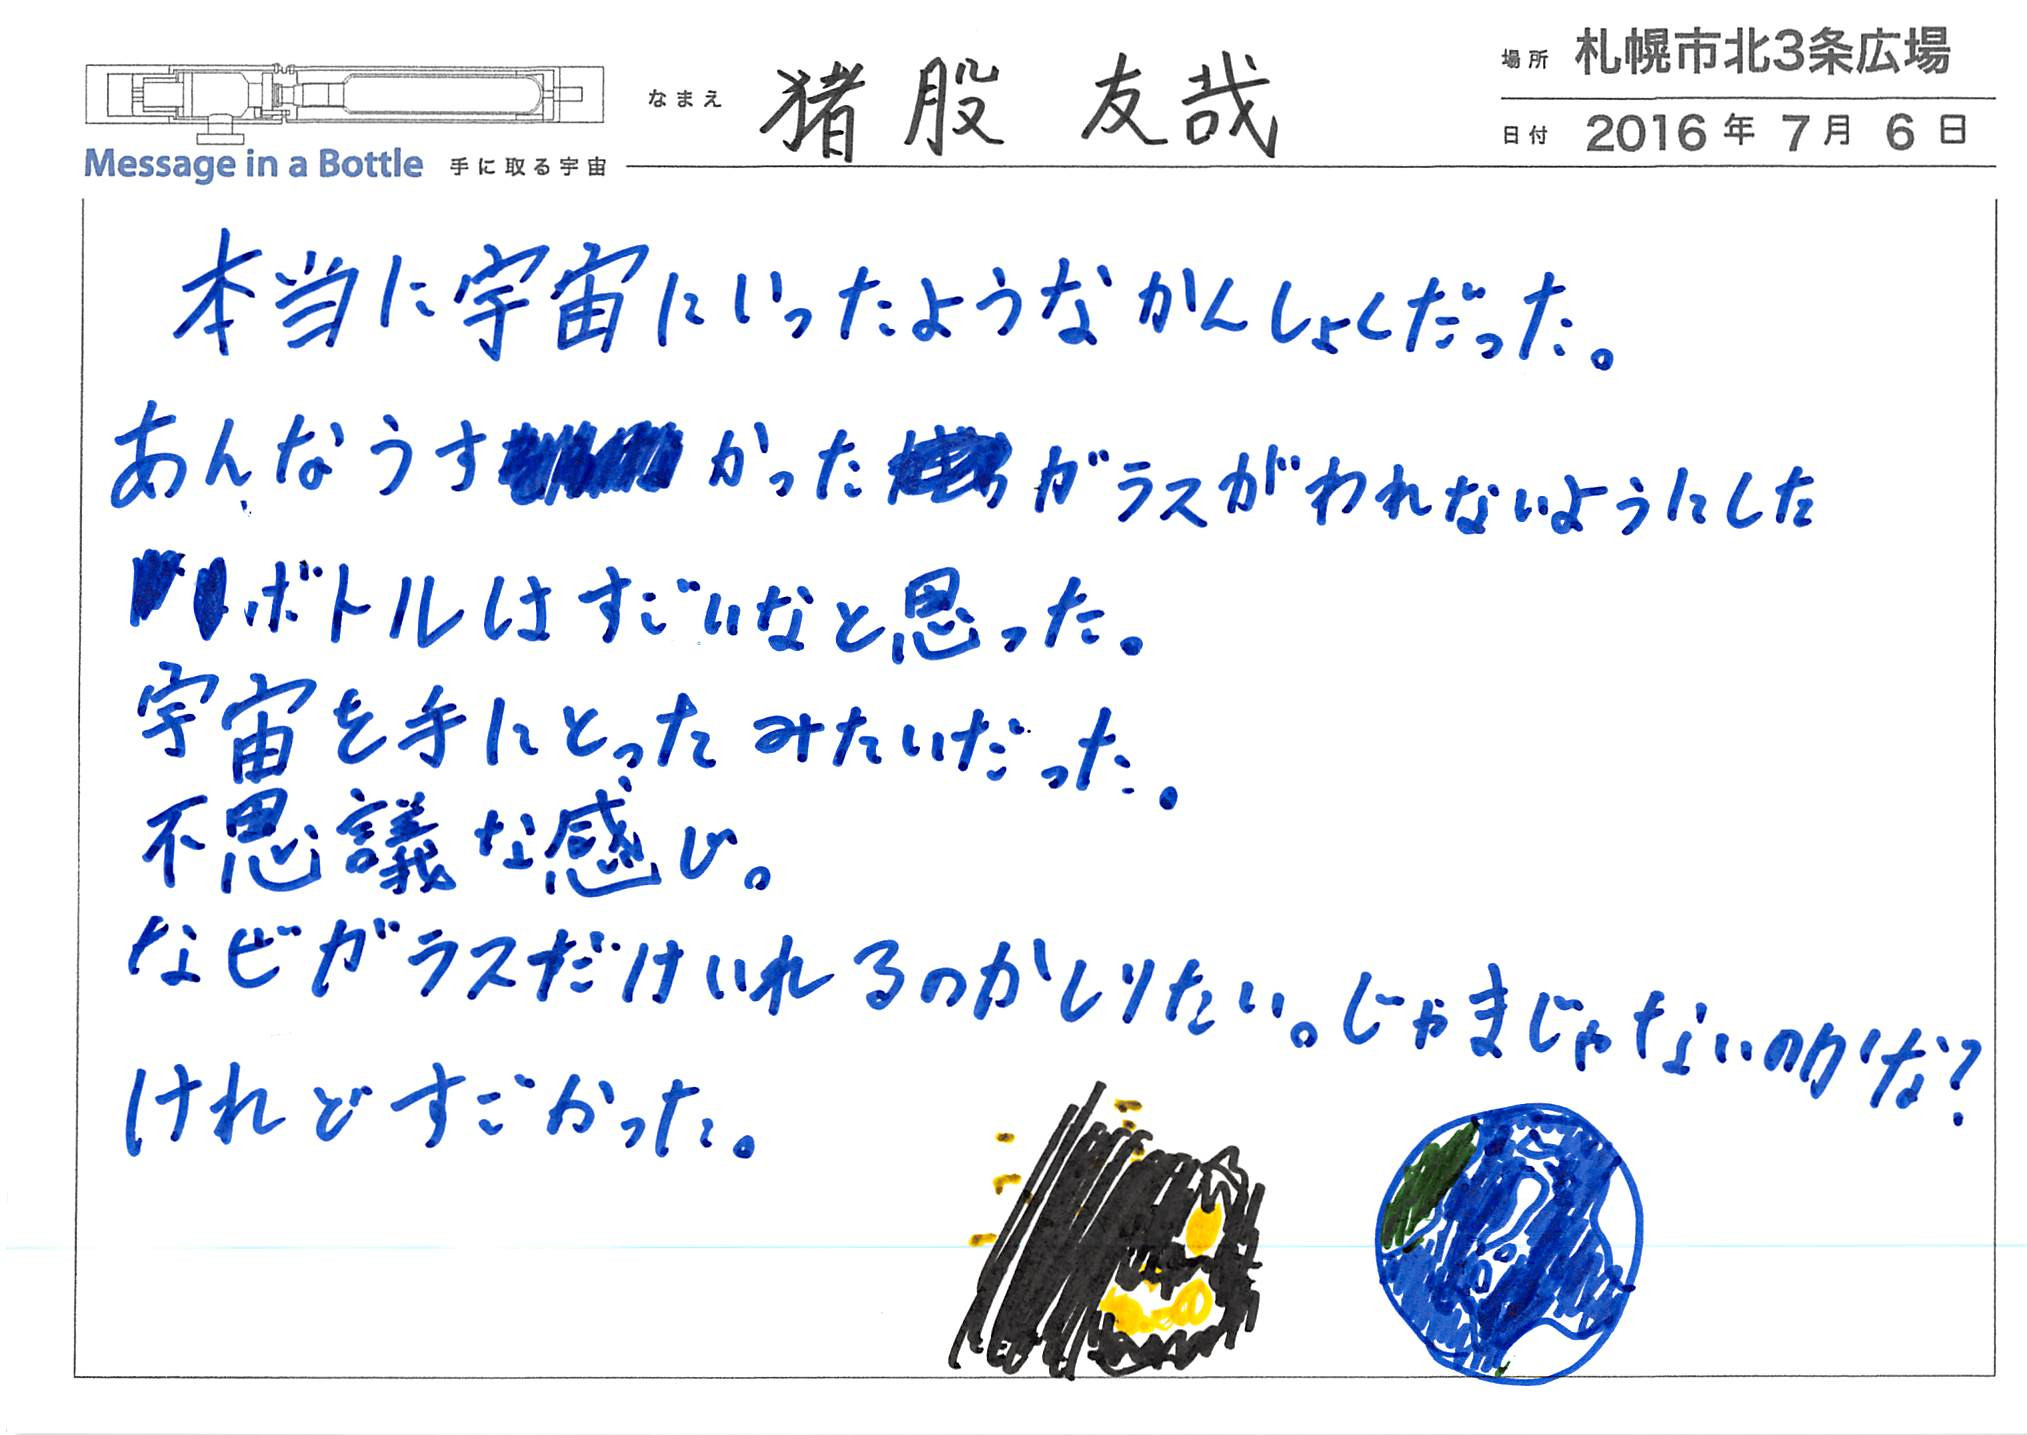 なまえ 猪股 友哉
場所 札幌市北3条広場
日付 2016年 7月 6日
Message in a Bottle 手に取る宇宙
本当に宇宙にいったようなかんしょくだった。
あんなうすかったガラスがわれないようにした
ボトルはすごいなと思った。
宇宙を手にとったみたいだった。
不思議な感じ。
なぜガラスだけいれるのかしりたい。じゃまじゃないのかな?
けれどすごかった。